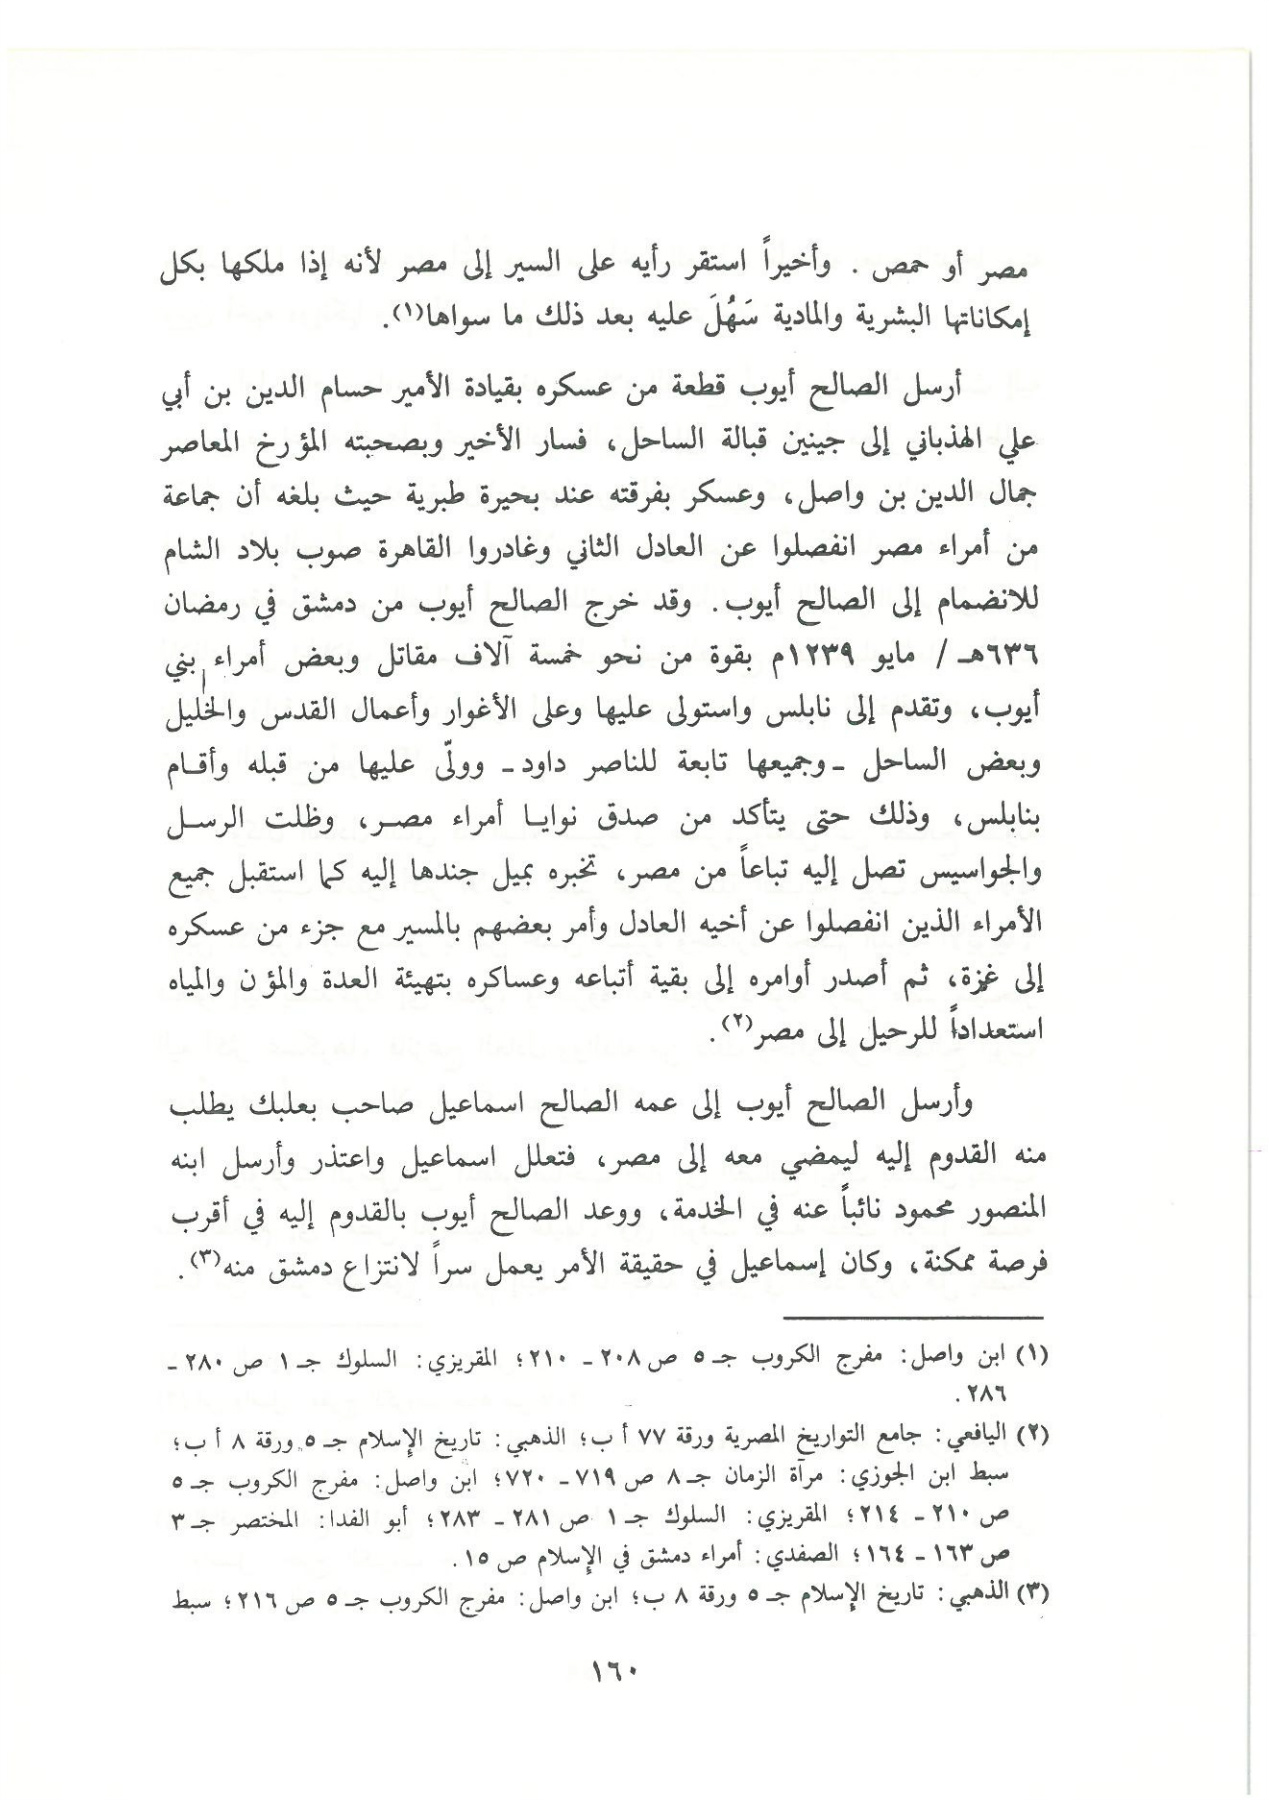 مصر أو حمص . وأخيراً استقر رأيه على السير إلى مصر لأنه إذا ملكها بكل
إمكاناتها البشرية والمادية سَهُلَ عليه بعد ذلك ما سواها(١).
أرسل الصالح أيوب قطعة من عسكره بقيادة الأمير حسام الدين بن أبي
علي الهذباني إلى جينين قبالة الساحل، فسار الأخير وبصحبته المؤرخ المعاصر
جمال الدين بن واصل، وعسكر بفرقته عند بحيرة طبرية حيث بلغه أن جماعة
من أمراء مصر انفصلوا عن العادل الثاني وغادروا القاهرة صوب بلاد الشام
للانضمام إلى الصالح أيوب. وقد خرج الصالح أيوب من دمشق في رمضان
٦٣٦هـ / مايو ١٢٣٩م بقوة من نحو خمسة آلاف مقاتل وبعض أمراء بني
أيوب، وتقدم إلى نابلس واستولى عليها وعلى الأغوار وأعمال القدس والخليل
وبعض الساحل ـ وجميعها تابعة للناصر داود ـ وولّى عليها من قبله وأقام
بنابلس، وذلك حتى يتأكد من صدق نوايا أمراء مصر، وظلت الرسل
والجواسيس تصل إليه تباعاً من مصر، تخبره بميل جندها إليه كما استقبل جميع
الأمراء الذين انفصلوا عن أخيه العادل وأمر بعضهم بالمسير مع جزء من عسكره
إلى غزة، ثم أصدر أوامره إلى بقية أتباعه وعساكره بتهيئة العدة والمؤن والمياه
استعداداً للرحيل إلى مصر(٢).
وأرسل الصالح أيوب إلى عمه الصالح اسماعيل صاحب بعلبك يطلب
منه القدوم إليه ليمضي معه إلى مصر، فتعلل اسماعيل واعتذر وأرسل ابنه
المنصور محمود نائباً عنه في الخدمة، ووعد الصالح أيوب بالقدوم إليه في أقرب
فرصة ممكنة، وكان إسماعيل في حقيقة الأمر يعمل سراً لانتزاع دمشق منه(٣).
(١) ابن واصل: مفرج الكروب جـ ٥ ص ٢٠٨ ـ ٢١٠؛ المقريزي: السلوك جـ ١ ص ٢٨٠ ـ
٢٨٦.
(٢) اليافعي: جامع التواريخ المصرية ورقة ٧٧ أ ب؛ الذهبي: تاريخ الإسلام جـ ٥ ورقة ٨ أ ب؛
سبط ابن الجوزي: مرآة الزمان جـ ٨ ص ٧١٩ ـ ٧٢٠؛ ابن واصل: مفرج الكروب جـ ٥
ص ٢١٠ ـ ٢١٤؛ المقريزي: السلوك جـ ١ ص ٢٨١ ـ ٢٨٣؛ أبو الفدا: المختصر جـ ٣
ص ١٦٣ ـ ١٦٤؛ الصفدي: أمراء دمشق في الإسلام ص ١٥.
(٣) الذهبي: تاريخ الإسلام جـ ٥ ورقة ٨ ب؛ ابن واصل: مفرج الكروب جـ ٥ ص ٢١٦؛ سبط
١٦٠